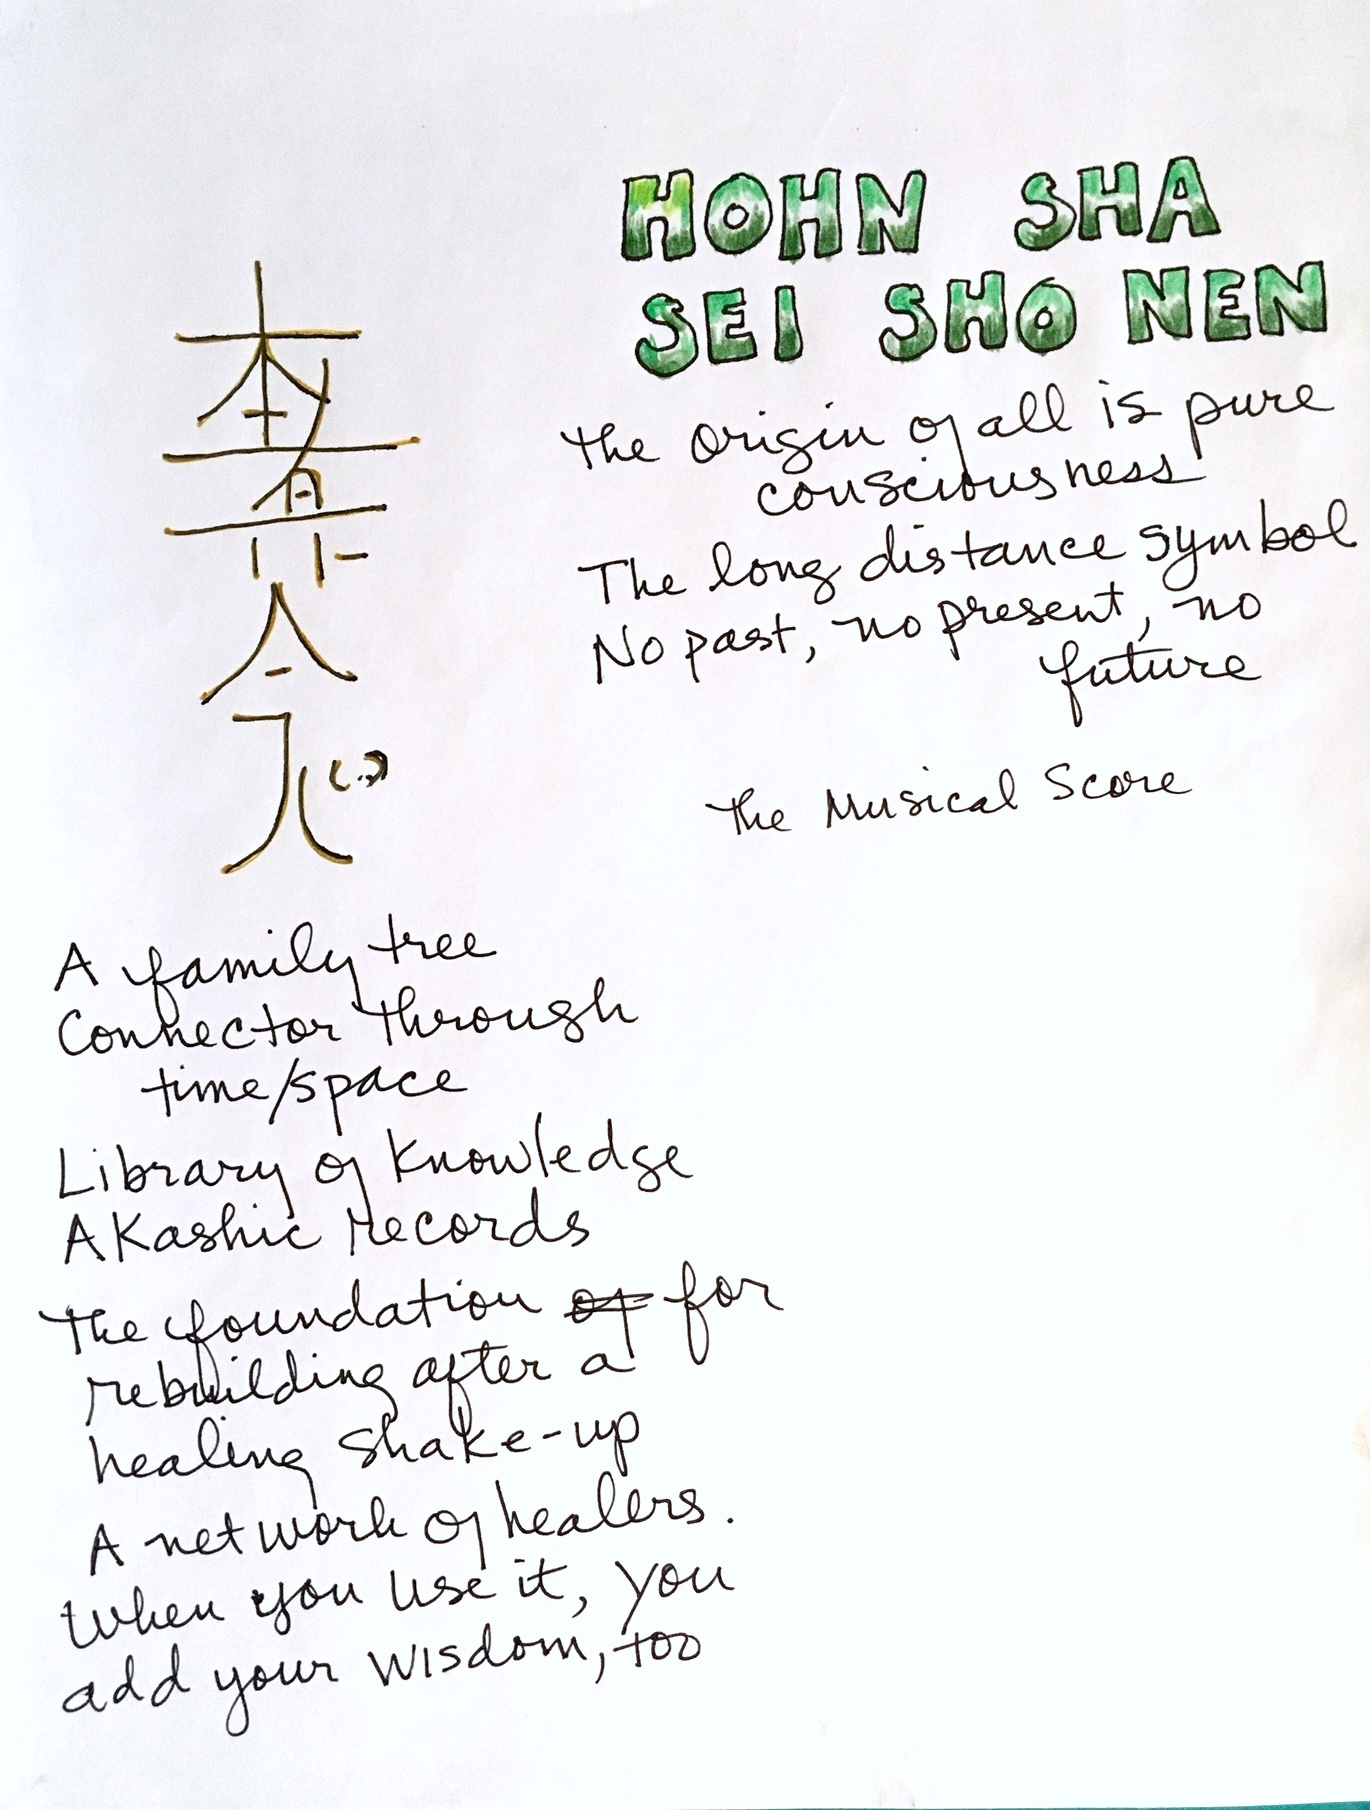 HOHN SHA
SEI SHO NEN
the origin of all is pure
consciousness
The long distance symbol
No past, no present, no
future
the Musical Score
A family tree
Connector through
time/space
Library of Knowledge
AKashic records
the foundation of for
rebuilding after a
healing shake-up
A network of healers.
When you use it, you
add your wisdom, too